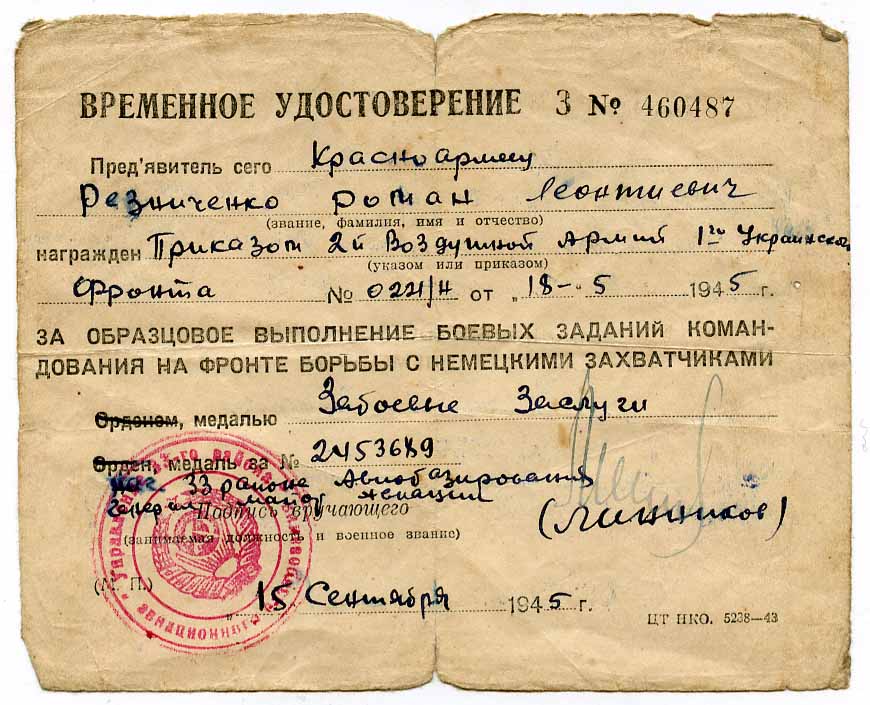 ВРЕМЕННОЕ УДОСТОВЕРЕНИЕ З № 460487
Пред'явитель сего Красноармеец
Резниченко Роман Леонтиевич
(звание, фамилия, имя и отчество)
награжден Приказом 2й Воздушной Армий 1го Украинского
(указом или приказом)
Фронта № 022/н от „18- 5 1945 г.
ЗА ОБРАЗЦОВОЕ ВЫПОЛНЕНИЕ БОЕВЫХ ЗАДАНИЙ КОМАН-
ДОВАНИЯ НА ФРОНТЕ БОРЬБЫ С НЕМЕЦКИМИ ЗАХВАТЧИКАМИ
Орденом, медалью За боевые Заслуги
Орден, медаль за № 2453689
Нач. 33 района Авиобазирования
Генерал майор Авиации
Подпись вручающего (Линников)
(занимаемая должность и военное звание)
(М. П.)
„15 Сентября 1945 г.
ЦТ НКО. 5238—43
Управление авиационного